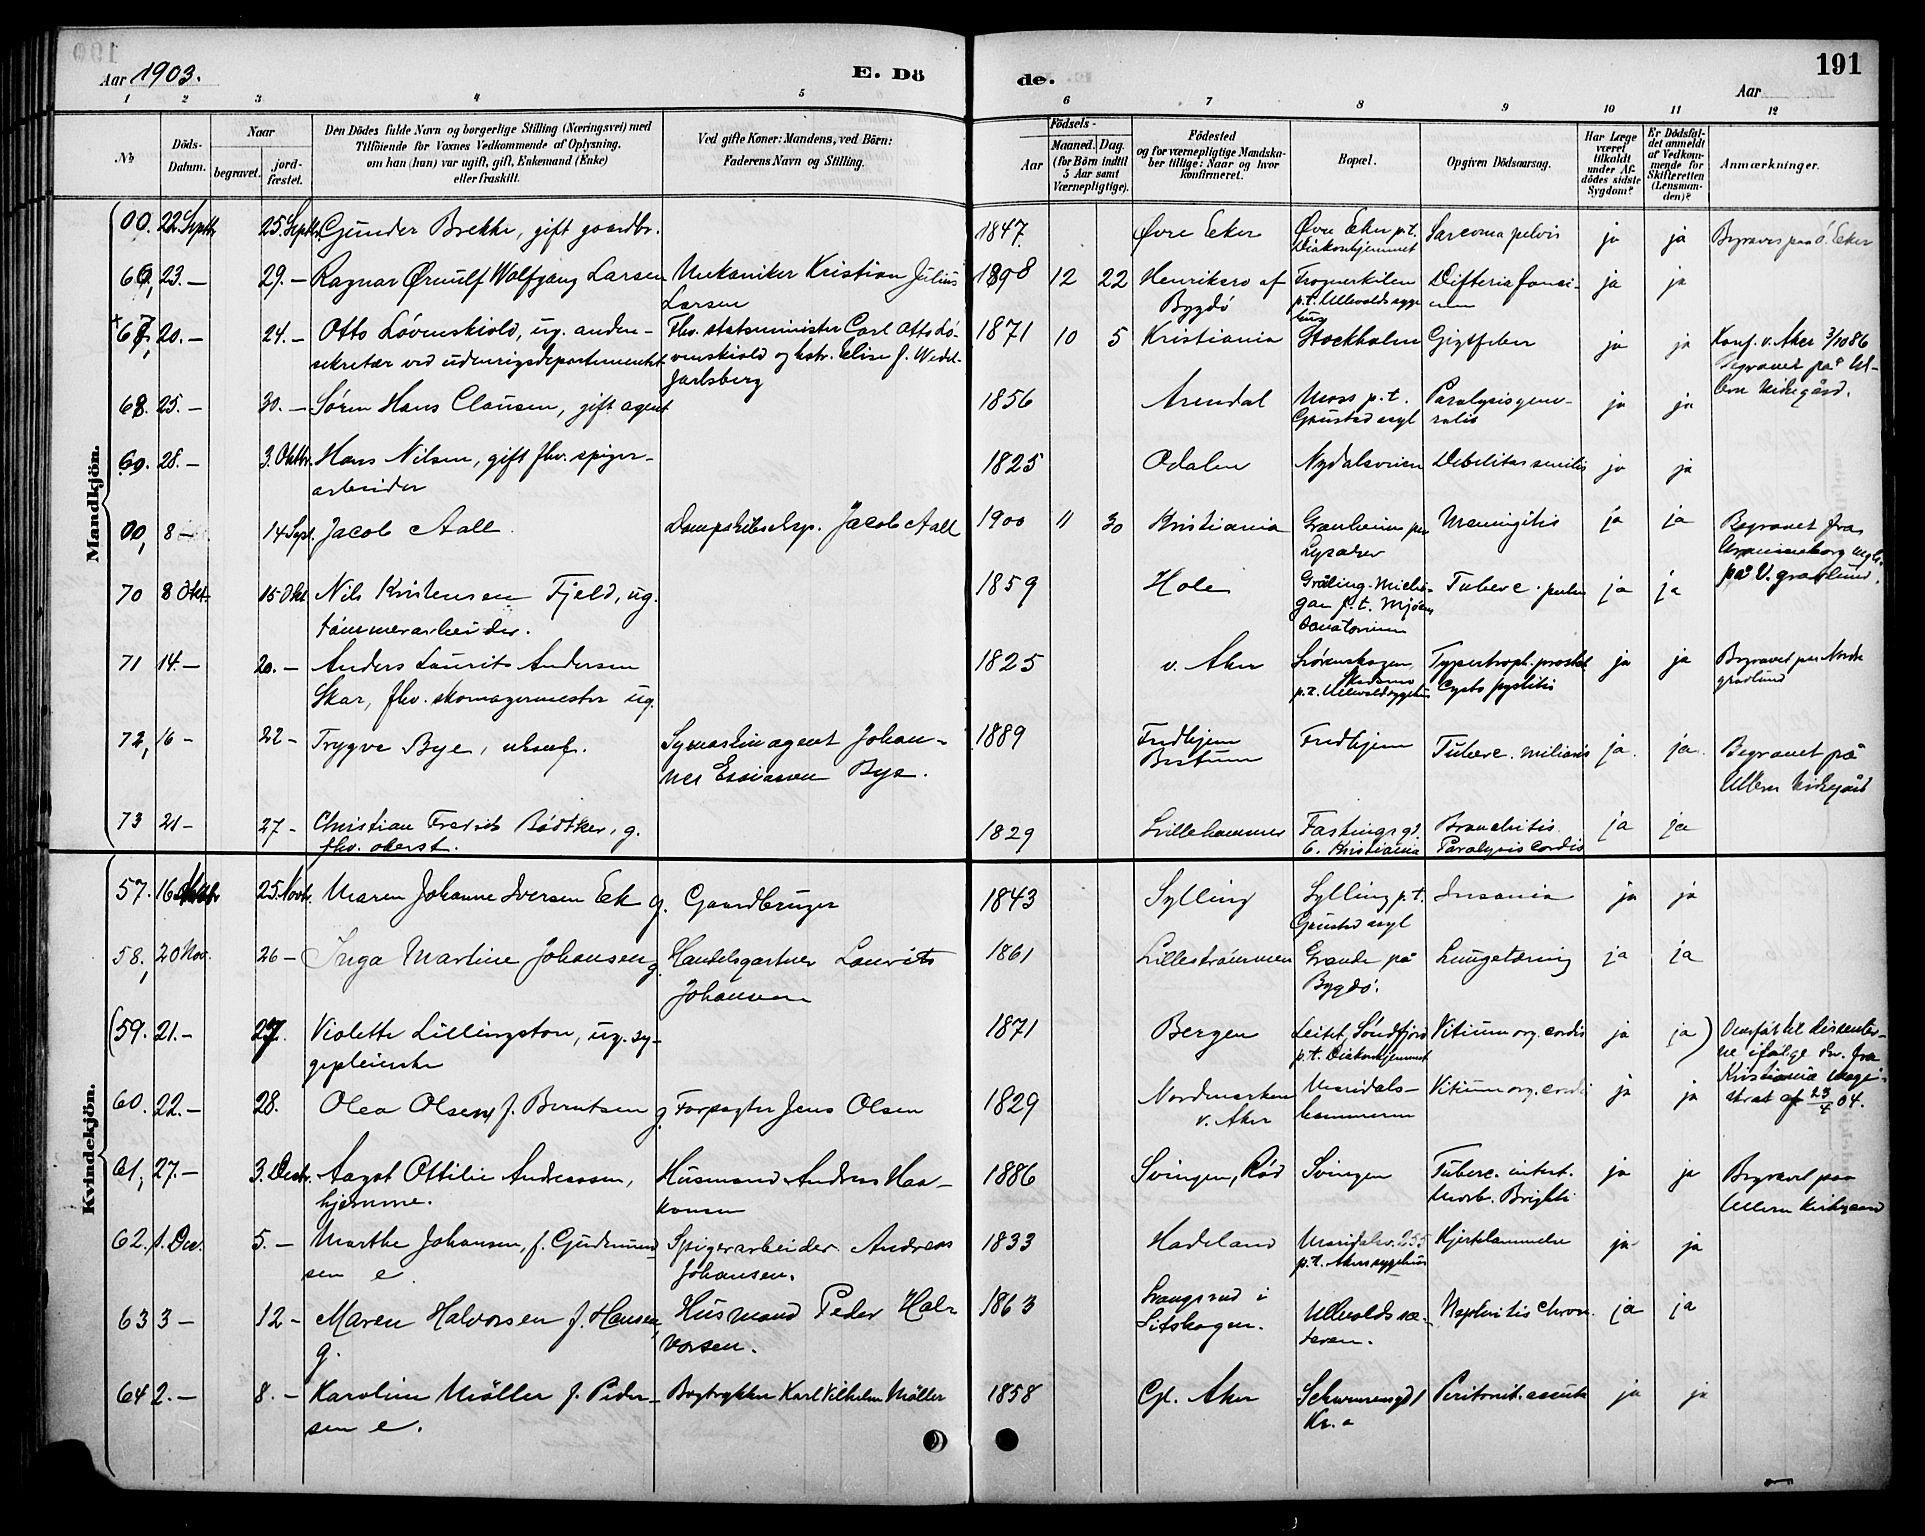 Aar 1903.
E. Dö
de.
Aar
191
1 2 3 4 5 6 7 8 9 10 11 12
No
Döds-Datum.
Naar
begravet.
jordfæstet.
Den Dödes fulde Navn og borgerlige Stilling (Næringsvei) med
Tilföiende for Voxnes Vedkommende af Oplysning,
om han (hun) var ugift, gift, Enkemand (Enke)
eller fraskilt.
Ved gifte Koner: Mandens, ved Börn:
Faderens Navn og Stilling.
Födsels-
Aar
Maaned. Dag.
(for Börn indtil
5 Aar samt
Værnepligtige).
Födested
og for værnepligtige Mandskaber
tillige: Naar og hvor
konfirmeret.
Bopæl.
Opgiven Dödsaarsag.
Har Læge
været
tilkaldt
under Afdödes
sidste
Sygdom?
Er Dödsfaldet
anmeldt
af Vedkommende
for
Skifteretten
(Lensmanden)?
Anmærkninger.
Mandkjön.
00. 22 Septb 25. Septbr. Gunder Brekke, gift gaardbr. 1847 Øvre Eker Øvre Eker p.t. Diakonhjemmet Sarcoma pelvis ja ja Begraves paa Ö. Eker
66, 23.— 29.— Ragnar Ørnulf Wolfgang Larsen Mekaniker Kristian Julius Larsen 1898 12 22 Henriksro af Bygdö Frognerkilen p.t. Ullevolds sygehus Difteria ja ja
+ 67, 20.— 24.— Otto Løvenskiold, ug. andensekretær ved udenrigsdepartementet Fhv. statsminister Carl Otto Løvenskiold og hstr. Elise f. Wedel-Jarlsberg 1871 10 5 Kristiania Stockholm Gigtfeber ja ja Konf. v. Aker 3/10 86 Begravet på Ullern kirkegård.
68. 25.— 30.— Søren Hans Clausen, gift agent 1856 Arendal Moss p.t. Gaustad asyl Paralysis generalis ja ja
69. 28.— 3. Oktbr. Hans Nilsen, gift fhv. spigerarbeider 1825 Odalen Nydalsveien Debilitas senilis ja ja
00, 8— 14 Sept. Jacob Aall Dampskibsexp. Jacob Aall 1900 11 30 Kristiania Granheim per Lysaker Meningitis ja ja Begravet fra på V. gravlund.
70 8 Okt. 15 Okt Nils Kristensen Fjeld, ug. tømmerarbeider. 1859 Hole Michigan p.t. Mjøens Sanatorium Tuberc. pulm ja ja
71 14.— 20.— Anders Laurits Andersen Skar, fhv. skomagermester ug. 1825 v. Aker Skedsmo p.t. Ullevold sygehus Hypertroph. prostat Cysto pyelitis ja ja Begravet paa Nordre gravlund
72, 16— 22— Trygve Bye, ukonf. Symaskinagent Johannes Esaiassen Bye. 1889 Fredhjem Bestum Fredhjem Tuberc. miliaris ja. ja. Begravet på Ullern Kirkegård
73 21— 27— Christian Fredrik Bödtker, g. fhv. oberst. 1829 Lillehammer Fastings gd. 6. Kristiania Bronchitis. Paralysis cordis ja ja
Kvindekjön.
57. 16 25. Novbr. Maren Johanne Iversen Ek g. Gaardbruger 1843 Sylling Sylling p.t. Gaustad asyl Insania ja ja
58, 20 Nov. 26— Inga Martine Johansen g. Handelsgartner Laurits Johansen 1861 Lillestrømmen Grande på Bygdö. Lungetæring ja ja
(59. 21.— 27. Violette Lillingston, ug. sygepleierske 1871 Bergen Leitet, Söndfjord p.t. Diakonhjemmet Vitium org. cordis ja ja) Overført til dissenterne ifølge skr. fra Kristiania magistrat af 23/4 04.
60. 22.— 28. Olea Olsen f. Berntsen g. Forpagter Jens Olsen 1829 Nordmarken v. Aker Maridalshammeren Vitium org. cordis ja ja
61, 27.— 3. Decbr. Aagot Ottilie Andreassen, hjemme. Husmand Andreas Haakonsen 1886 Svingen, Röd Svingen Tuberc. intest. Morb. Brighti ja ja Begravet paa Ullern Kirkegaard
62. 1. Dec. 5.— Marthe Johansen, f. Gudmundsen e. Spigerarbeider Andreas Johansen. 1833 Hadeland Maridalsv. 255 p.t. Akers sygehus Hjertelammelse ja ja
63 3— 12— Maren Halvorsen f. Hansen, g. Husmand Peder Halvorsen. 1863 Langsrud i Sitskogen. Ullevoldssæteren. Nephritis chron. ja ja
64 2.— 8.— Karoline Möller f. Pedersen e. Bogtrykker Karl Vilhelm Möller 1858 Gl. Aker Schwensensgd 1 Kr.a Peritonit. acuta ja ja